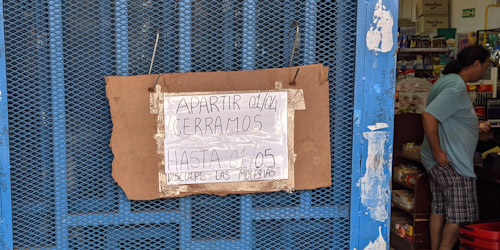 APARTIR 01/04
CERRAMOS
HASTA 02/05
DISCULPE LAS MOLESTIAS